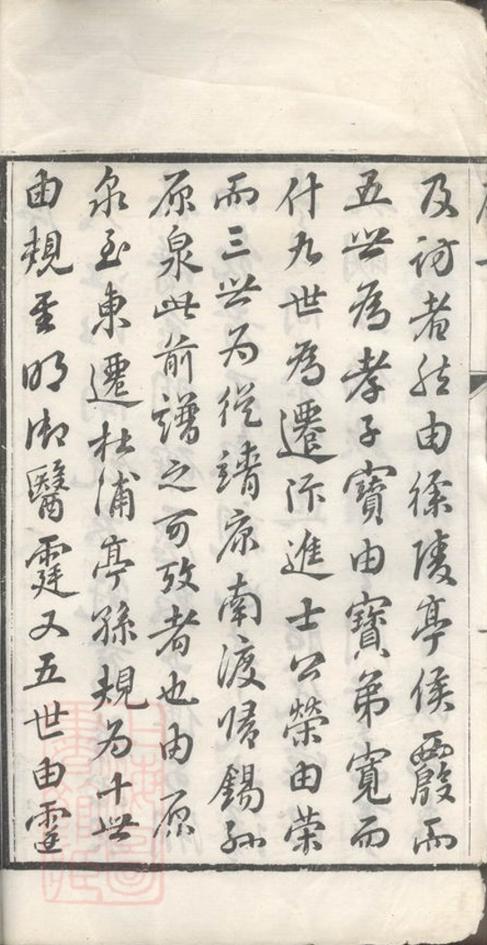 及訪者然由徐陵亭侯殷而
五世為孝子寶由寶弟寬而
什九世為遷汴進士公榮由榮
而三世為從靖康南渡歸錫孙
原泉此前譜之可攷者也由原
泉至東遷杜浦亭孫規為十世
由規至明御醫霆又五世由霆